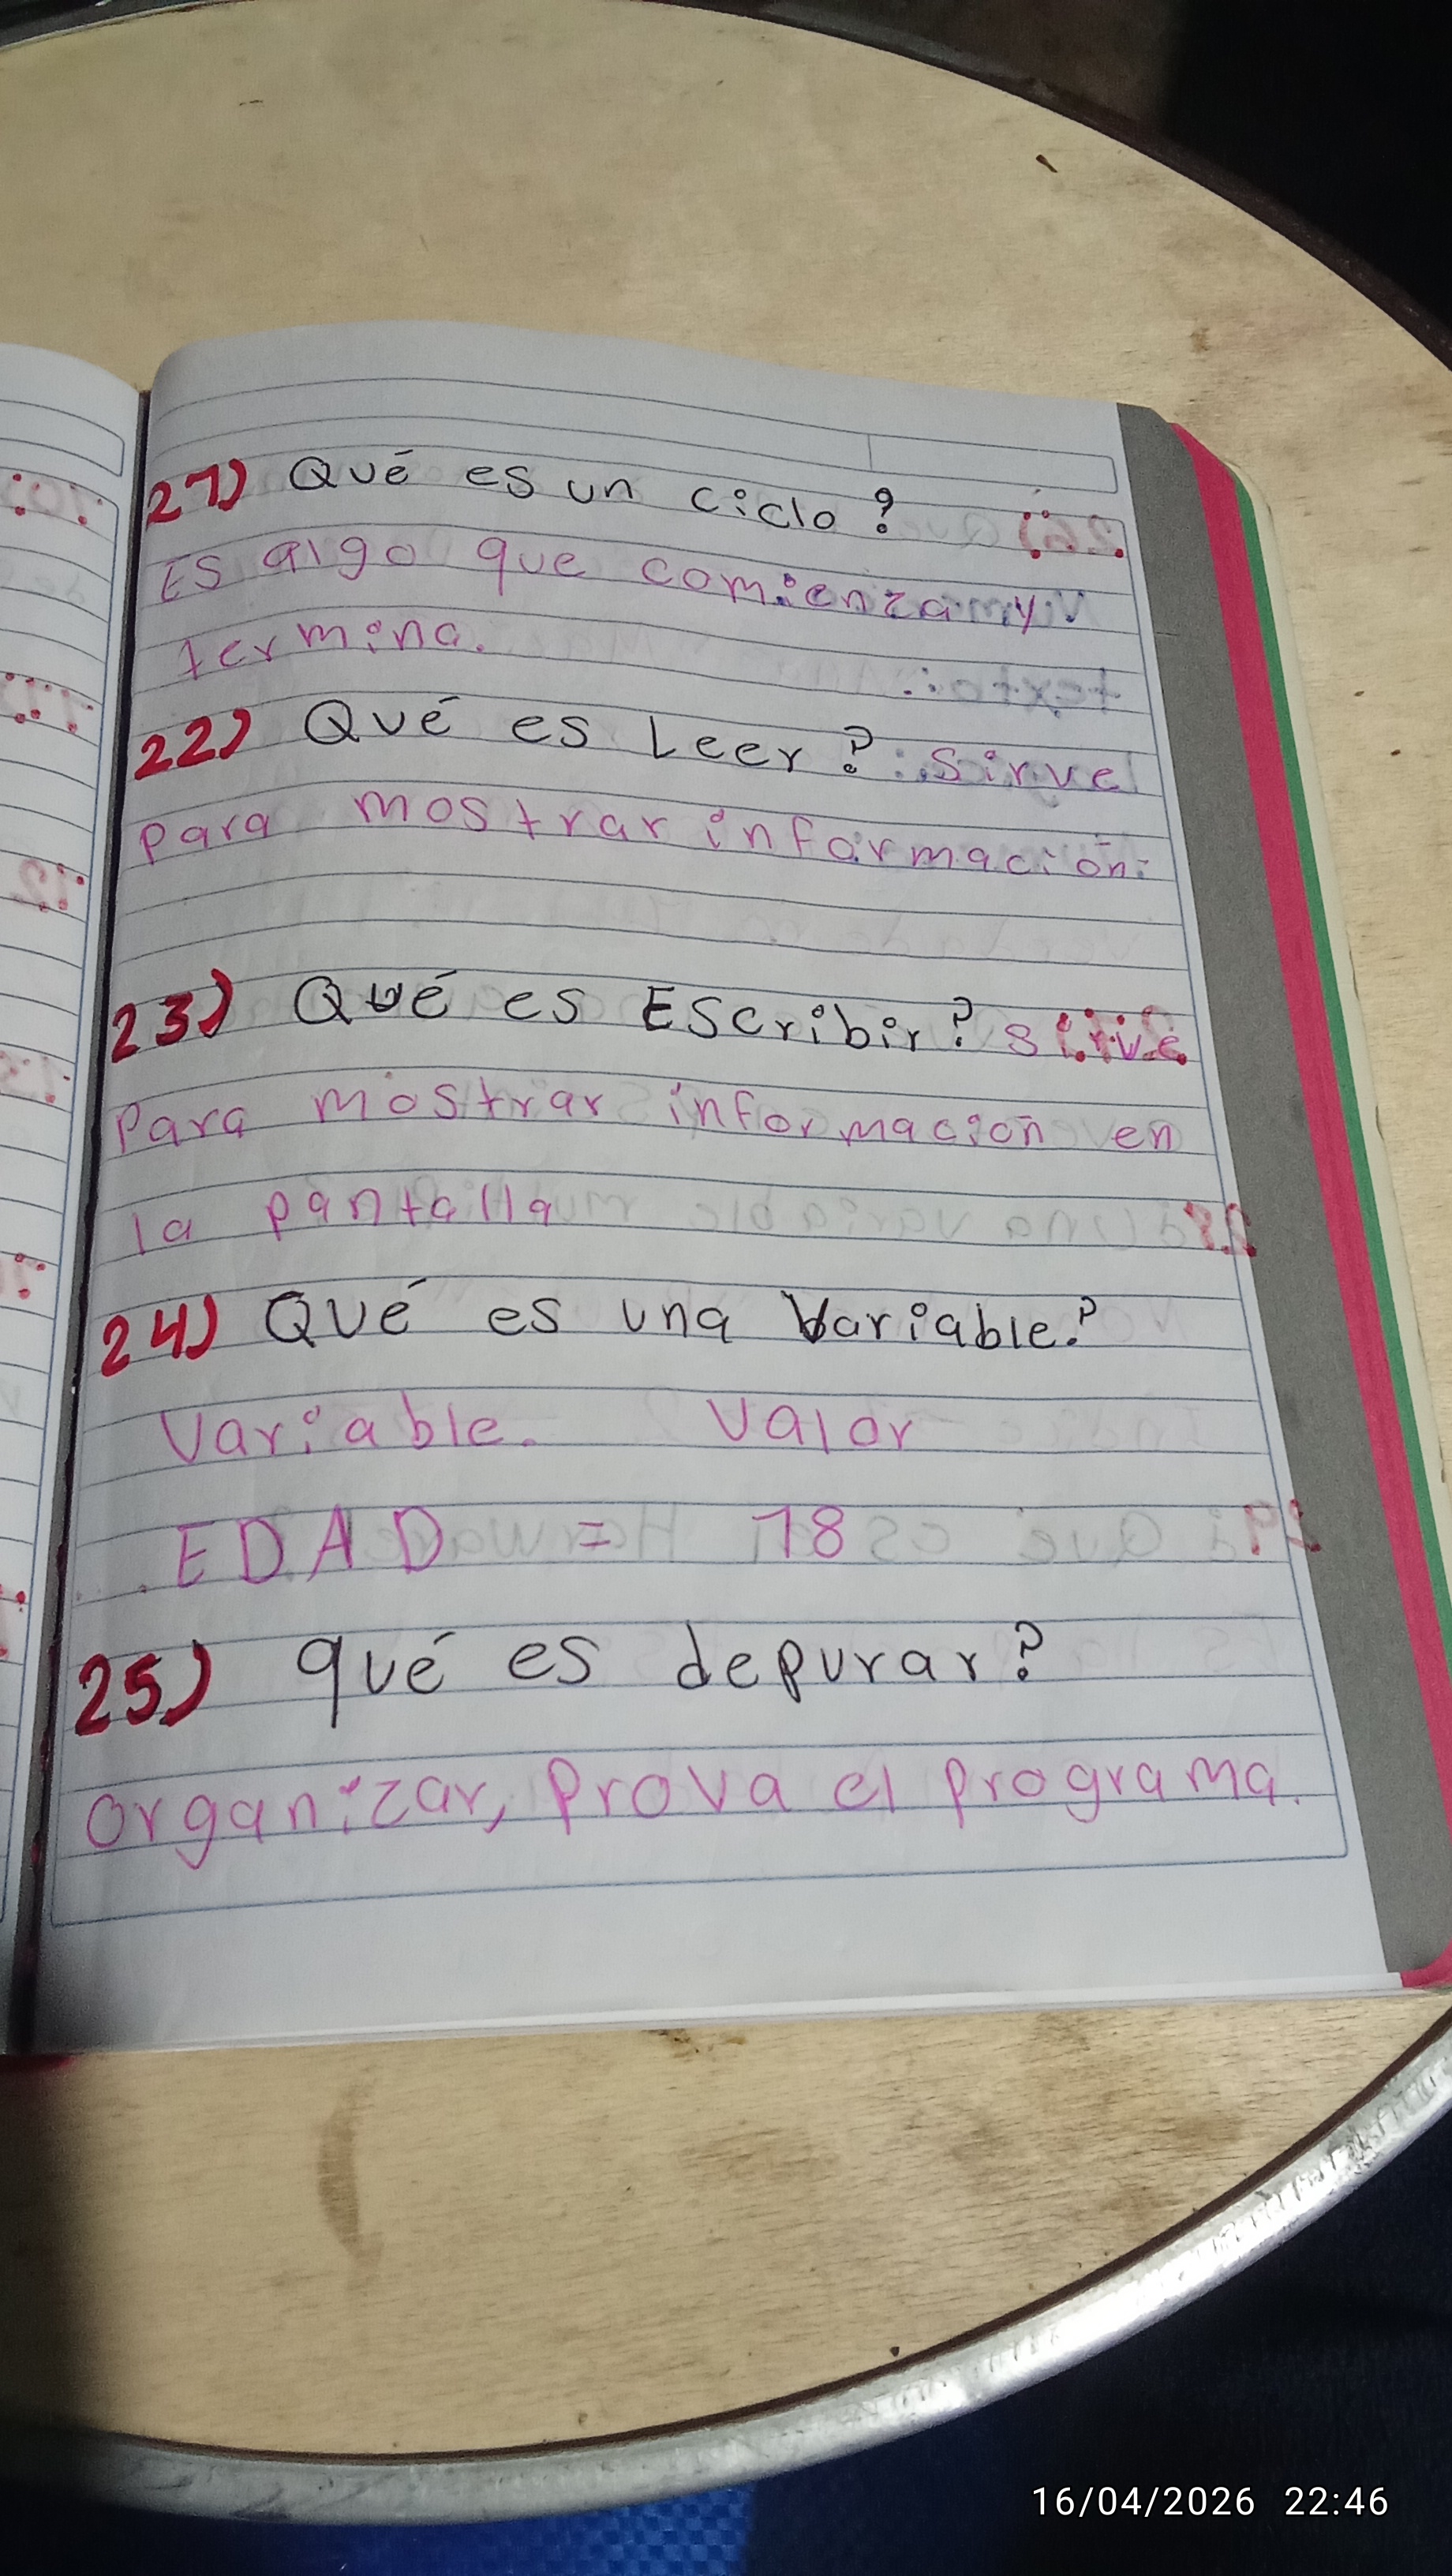 21) Qué es un ciclo?
Es algo que comienza y
termina.
22) Qué es Leer? Sirve
para mostrar información.
23) Qué es Escribir? Sirve
Para mostrar información en
la pantalla
24) Qué es una Variable?
Variable. Valor
EDAD = 18
25) qué es depurar?
organizar, Prova el programa.
16/04/2026 22:46